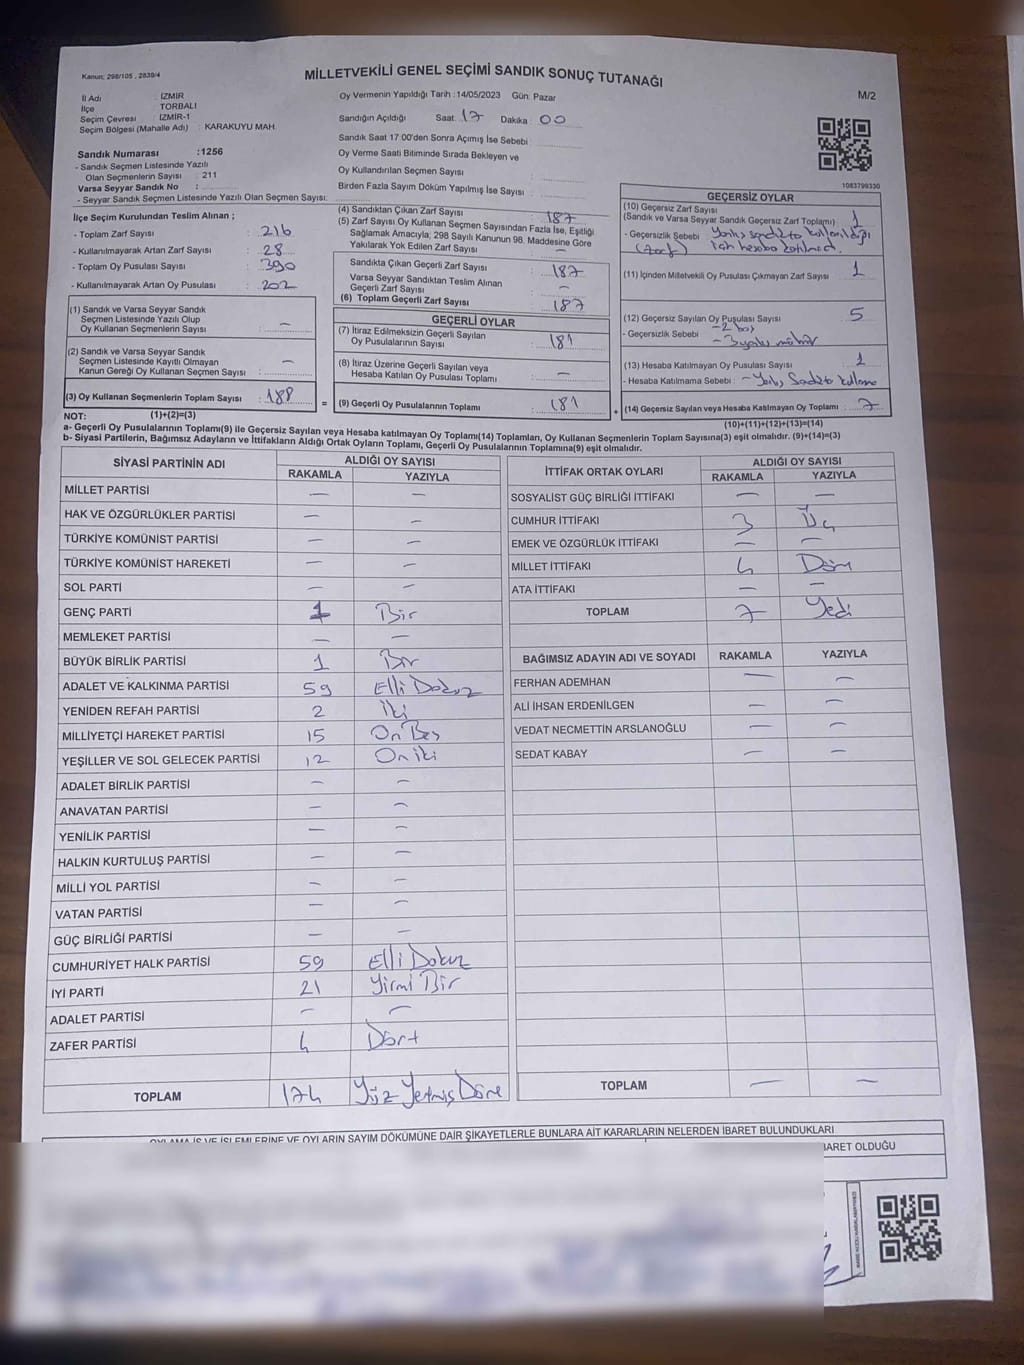 Kanun: 298/105 , 2839/4
MİLLETVEKİLİ GENEL SEÇİMİ SANDIK SONUÇ TUTANAĞI
M/2
İl Adı : İZMİR
İlçe TORBALI
Seçim Çevresi : İZMİR-1
Seçim Bölgesi (Mahalle Adı) : KARAKUYU MAH.
Oy Vermenin Yapıldığı Tarih :14/05/2023 Gün: Pazar
Sandığın Açıldığı Saat: 17 Dakika: 00
Sandık Saat 17:00'den Sonra Açımış İse Sebebi
Oy Verme Saati Bitiminde Sırada Bekleyen ve
Oy Kullandırılan Seçmen Sayısı :
Birden Fazla Sayım Döküm Yapılmış İse Sayısı :
Sandık Numarası :1256
- Sandık Seçmen Listesinde Yazılı
Olan Seçmenlerin Sayısı : 211
Varsa Seyyar Sandık No :
- Seyyar Sandık Seçmen Listesinde Yazılı Olan Seçmen Sayısı:
İlçe Seçim Kurulundan Teslim Alınan ;
- Toplam Zarf Sayısı : 216
- Kullanılmayarak Artan Zarf Sayısı : 28
- Toplam Oy Pusulası Sayısı : 390
- Kullanılmayarak Artan Oy Pusulası : 202
(1) Sandık ve Varsa Seyyar Sandık
Seçmen Listesinde Yazılı Olup
Oy Kullanan Seçmenlerin Sayısı : –
(2) Sandık ve Varsa Seyyar Sandık
Seçmen Listesinde Kayıtlı Olmayan
Kanun Gereği Oy Kullanan Seçmen Sayısı : –
(3) Oy Kullanan Seçmenlerin Toplam Sayısı : 188
(4) Sandıktan Çıkan Zarf Sayısı : 187
(5) Zarf Sayısı Oy Kullanan Seçmen Sayısından Fazla İse, Eşitliği
Sağlamak Amacıyla; 298 Sayılı Kanunun 98. Maddesine Göre
Yakılarak Yok Edilen Zarf Sayısı : –
Sandıkta Çıkan Geçerli Zarf Sayısı : 187
Varsa Seyyar Sandıktan Teslim Alınan
Geçerli Zarf Sayısı : –
(6) Toplam Geçerli Zarf Sayısı : 187
GEÇERLİ OYLAR
(7) İtiraz Edilmeksizin Geçerli Sayılan
Oy Pusulalarının Sayısı : 181
(8) İtiraz Üzerine Geçerli Sayılan veya
Hesaba Katılan Oy Pusulası Toplamı : –
= (9) Geçerli Oy Pusulalarının Toplamı : 181
1083798330
GEÇERSİZ OYLAR
(10) Geçersiz Zarf Sayısı
(Sandık ve Varsa Seyyar Sandık Geçersiz Zarf Toplamı) : 1
- Geçersizlik Sebebi : Yanlış sandıkta kullanıldığı
(zarf) için hesaba katılmadı.
(11) İçinden Milletvekili Oy Pusulası Çıkmayan Zarf Sayısı : 1
(12) Geçersiz Sayılan Oy Pusulası Sayısı : 5
- Geçersizlik Sebebi : – 2 boş
– 3 yanlış mühür
(13) Hesaba Katılmayan Oy Pusulası Sayısı : 1
- Hesaba Katılmama Sebebi : – Yanlış Sandıkta kullanma
+ (14) Geçersiz Sayılan veya Hesaba Katılmayan Oy Toplamı : 7
NOT: (1)+(2)=(3)
(10)+(11)+(12)+(13)=(14)
a- Geçerli Oy Pusulalarının Toplamı(9) ile Geçersiz Sayılan veya Hesaba katılmayan Oy Toplamı(14) Toplamları, Oy Kullanan Seçmenlerin Toplam Sayısına(3) eşit olmalıdır. (9)+(14)=(3)
b- Siyasi Partilerin, Bağımsız Adayların ve İttifakların Aldığı Ortak Oyların Toplamı, Geçerli Oy Pusulalarının Toplamına(9) eşit olmalıdır.
SİYASİ PARTİNİN ADI ALDIĞI OY SAYISI
RAKAMLA YAZIYLA
MİLLET PARTİSİ – –
HAK VE ÖZGÜRLÜKLER PARTİSİ – –
TÜRKİYE KOMÜNİST PARTİSİ – –
TÜRKİYE KOMÜNİST HAREKETİ – –
SOL PARTİ – –
GENÇ PARTİ 1 Bir
MEMLEKET PARTİSİ – –
BÜYÜK BİRLİK PARTİSİ 1 Bir
ADALET VE KALKINMA PARTİSİ 59 Elli Dokuz
YENİDEN REFAH PARTİSİ 2 İki
MİLLİYETÇİ HAREKET PARTİSİ 15 On Beş
YEŞİLLER VE SOL GELECEK PARTİSİ 12 On iki
ADALET BİRLİK PARTİSİ – –
ANAVATAN PARTİSİ – –
YENİLİK PARTİSİ – –
HALKIN KURTULUŞ PARTİSİ – –
MİLLİ YOL PARTİSİ – –
VATAN PARTİSİ – –
GÜÇ BİRLİĞİ PARTİSİ – –
CUMHURİYET HALK PARTİSİ 59 Elli Dokuz
İYİ PARTİ 21 Yirmi Bir
ADALET PARTİSİ – –
ZAFER PARTİSİ 4 Dört
TOPLAM 174 Yüz Yetmiş Dört
İTTİFAK ORTAK OYLARI ALDIĞI OY SAYISI
RAKAMLA YAZIYLA
SOSYALİST GÜÇ BİRLİĞİ İTTİFAKI – –
CUMHUR İTTİFAKI 3 Üç
EMEK VE ÖZGÜRLÜK İTTİFAKI – –
MİLLET İTTİFAKI 4 Dört
ATA İTTİFAKI – –
TOPLAM 7 Yedi
BAĞIMSIZ ADAYIN ADI VE SOYADI RAKAMLA YAZIYLA
FERHAN ADEMHAN – –
ALİ İHSAN ERDENİLGEN – –
VEDAT NECMETTİN ARSLANOĞLU – –
SEDAT KABAY – –
TOPLAM – –
OYLAMA İŞ VE İŞLEMLERİNE VE OYLARIN SAYIM DÖKÜMÜNE DAİR ŞİKAYETLERLE BUNLARA AİT KARARLARIN NELERDEN İBARET BULUNDUKLARI
BARET OLDUĞU